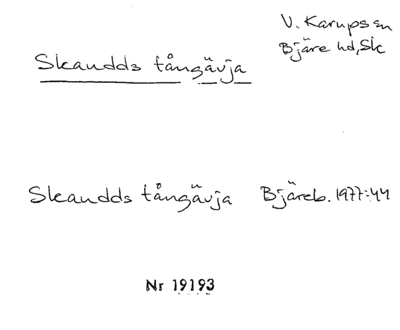 V. Karups sn
Bjäre hd, Sk
Skaudds tångävja
Skaudds tångävja Bjäreb. 1977:44
Nr 19193